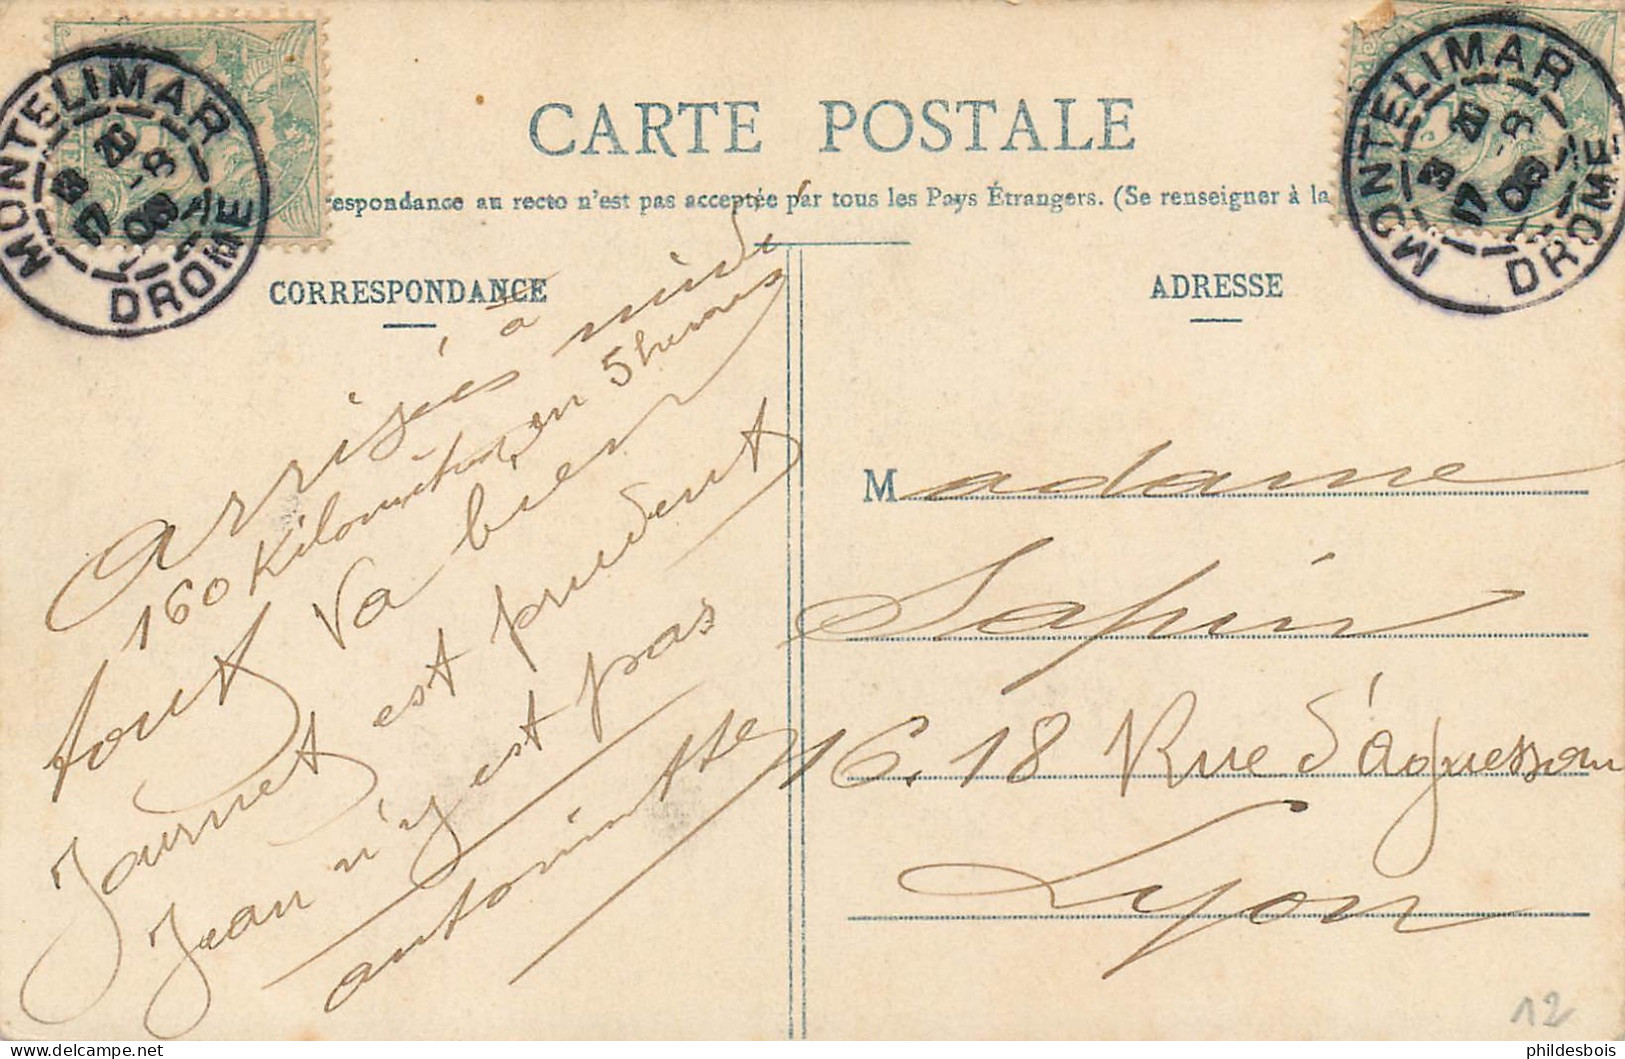 CARTE POSTALE
respondance au recto n'est pas acceptée par tous les Pays Étrangers. (Se renseigner à la
MONTELIMAR
DROME
MONTELIMAR
DROME
CORRESPONDANCE
ADRESSE
arrisés à midi
160 Kilomètres en 5 heures
tout va bien
Journet est prudent
Jean n'y est pas
antoinette
Madame
Sapin
16.18 Rue d'Aguesseau
Lyon
12
phildesbois